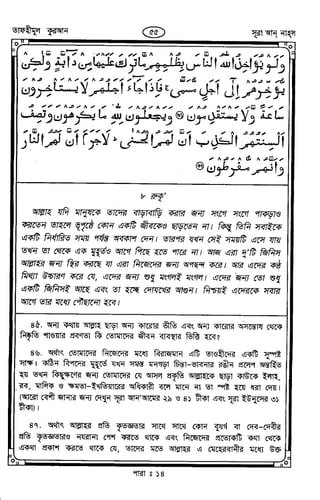 তাফহীমুল কুরআন
৫৫
সূরা আন্ নাহল
وَلَوْ يُؤَاخِذُ اللهُ النَّاسَ بِظُلْمِهِمْ مَّا تَرَكَ عَلَيْهَا مِنْ دَآبَّةٍ وَّلٰكِنْ
يُّؤَخِّرُهُمْ اِلٰٓى اَجَلٍ مُّسَمًّى ۚ فَاِذَا جَآءَ اَجَلُهُمْ لَا يَسْتَاْخِرُوْنَ
سَاعَةً وَّلَا يَسْتَقْدِمُوْنَ ۝ وَيَجْعَلُوْنَ لِلّٰهِ مَا يَكْرَهُوْنَ وَتَصِفُ
اَلْسِنَتُهُمُ الْكَذِبَ اَنَّ لَهُمُ الْحُسْنٰى ۚ لَا جَرَمَ اَنَّ لَهُمُ النَّارَ
وَاَنَّهُمْ مُّفْرَطُوْنَ ۝
৮ রুকূ'
আল্লাহ যদি মানুষকে তাদের বাড়াবাড়ি করার জন্য সংগে সংগে পাকড়াও
করতেন তাহলে ভূপৃষ্ঠে কোন একটি জীবকেও ছাড়তেন না। কিন্তু তিনি সবাইকে
একটি নির্ধারিত সময় পর্যন্ত অবকাশ দেন। তারপর যখন সেই সময়টি এসে যায়
তখন তা থেকে এক মুহূর্তও আগে পিছে হতে পারে না। আজ এরা দু'টি জিনিস
আল্লাহর জন্য স্থির করছে যা এরা নিজেদের জন্য অপছন্দ করে। আর এদের কণ্ঠ
মিথ্যা উচ্চারণ করে যে, এদের জন্য শুধু মংগলই মংগল। এদের জন্য তো শুধু
একটি জিনিসই আছে এবং তা হচ্ছে দোযখের আগুন। নিশ্চয়ই এদেরকে সবার
আগে তার মধ্যে পৌঁছানো হবে।
৪৫. অন্য কথায় আল্লাহ ছাড়া অন্য কারোর ভীতি এবং অন্য কারোর অসন্তোষ থেকে
নিষ্কৃতি পাওয়ার প্রবণতা কি তোমাদের জীবন ব্যবস্থার ভিত্তি হবে?
৪৬. অর্থাৎ তোমাদের নিজেদের মধ্যে বিরাজমান এটি তাওহীদের একটি সুস্পষ্ট
সাক্ষ্য। কঠিন বিপদের মুহূর্তে যখন সমস্ত মনগড়া চিন্তা-ভাবনার রঙীন প্রলেপ অন্তর্হিত
হয় তখন কিছুক্ষণের জন্য তোমাদের যে আসল প্রকৃতি আল্লাহকে ছাড়া কাউকে ইলাহ,
রব, মালিক ও ক্ষমতা-ইখতিয়ারের অধিকারী বলে মানে না তা স্পষ্ট হয়ে ধরা দেয়।
(আরো বেশী জানার জন্য দেখুন সূরা আন'আমের ২৯ ও ৪১ টীকা এবং সূরা ইউনুসের ৩১
টীকা)।
৪৭. অর্থাৎ আল্লাহর প্রতি কৃতজ্ঞতার সাথে সাথে কোন বুযর্গ বা দেব-দেবীর
প্রতি কৃতজ্ঞতারও নযরানা পেশ করতে থাকে এবং নিজেদের প্রত্যেকটি কথা থেকে
একথা প্রকাশ করতে থাকে যে, তাদের মতে আল্লাহর এ মেহেরবানীর মধ্যে উক্ত
পারা : ১৪